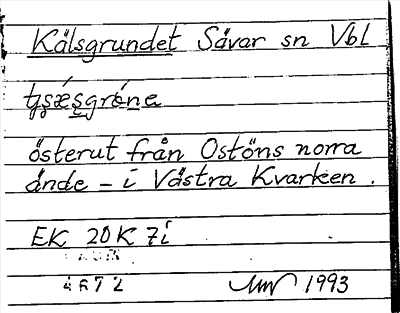 Kälsgrundet Sävar sn Vbl
österut från Ostöns norra
ände – i Västra Kvarken.
EK 20K 7i
4672 1993